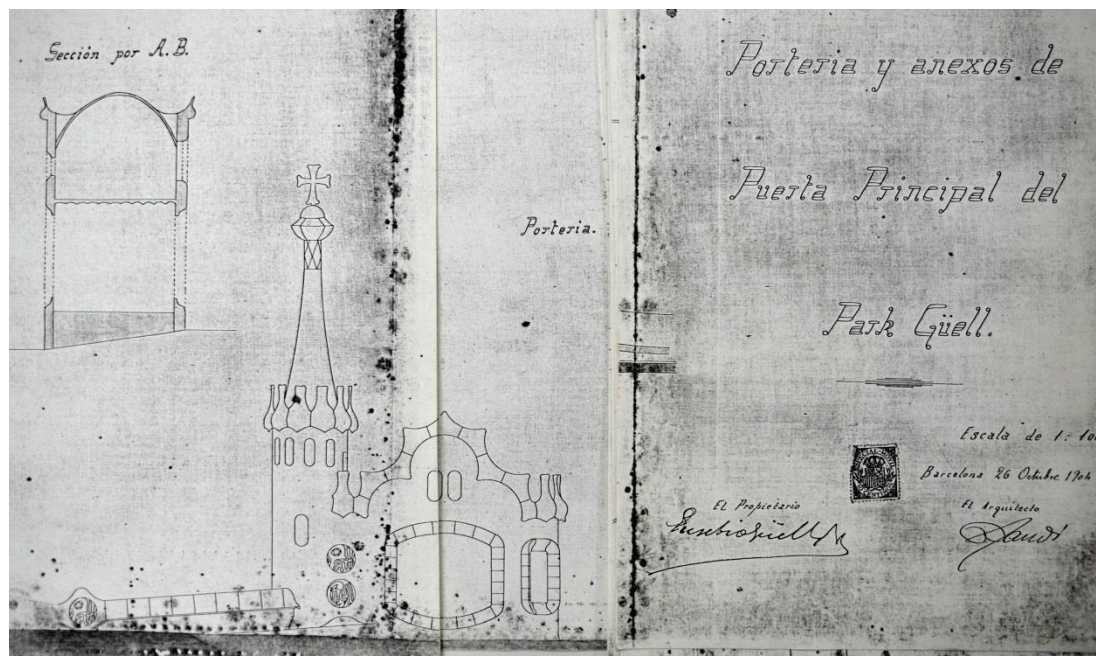 Sección por A. B.
Porteria.
Porteria y anexos de
Puerta Principal del
Park Güell.
Escala de 1:100
Barcelona 26 Octubre 1904
El Propietario
El Arquitecto
Eusebio Güell
Gaudí